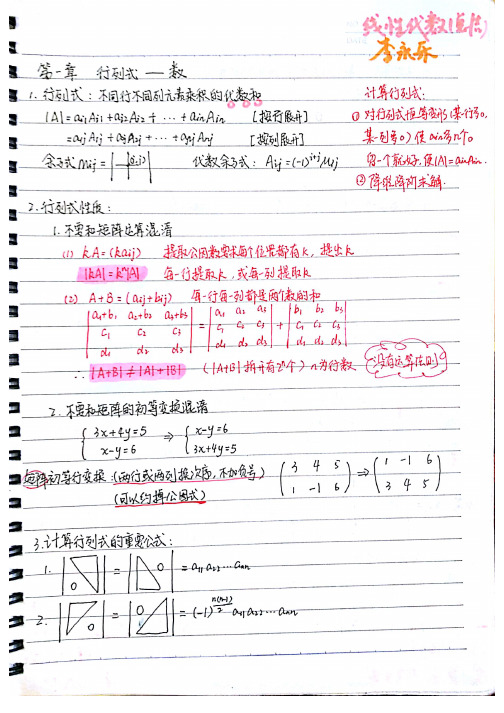 线性代数(上传)
李永乐
第一章 行列式 — 数
1. 行列式:不同行不同列元素乘积的代数和
|A|=ai1Ai1+ai2Ai2+⋯+ainAin [按行展开]
=a1jA1j+a2jA2j+⋯+anjAnj [按列展开]
余子式Mij= 代数余子式:Aij=(-1)^(i+j)Mij
计算行列式:
① 对行列式恒等变形(某行多0,
某列多0)使ain多几个0
留一个就好,使|A|=ainAin.
② 降维降阶求解.
2. 行列式性质:
1. 不要和矩阵运算混淆
(1) kA=(kaij) 提取公因数要求每个位置都有k,提出k
|kA|=k^n|A| 每一行提取k,或每一列提取k
(2) A+B=(aij+bij) 每一行每一列都是两个数的和
|a1+b1 a2+b2 a3+b3| = |a1 a2 a3| + |b1 b2 b3|
|c1 c2 c3| |c1 c2 c3| |c1 c2 c3|
|d1 d2 d3| |d1 d2 d3| |d1 d2 d3|
∴ |A+B|≠|A|+|B| (|A+B|拆开有2^n个) n为行数 没有运算法则
2. 不要和矩阵的初等变换混淆
{3x+4y=5 ⇒ {x-y=6
x-y=6 3x+4y=5
矩阵初等行变换:(两行或两列换次序,不加负号) (3 4 5) ⇒ (1 -1 6)
(可以约掉公因式) (1 -1 6) (3 4 5)
3. 计算行列式的重要公式:
1. | 0 | = | 0 | = a11a22⋯ann
2. | 0 | = | 0 | = (-1)^(n(n-1)/2) a11a22⋯ann